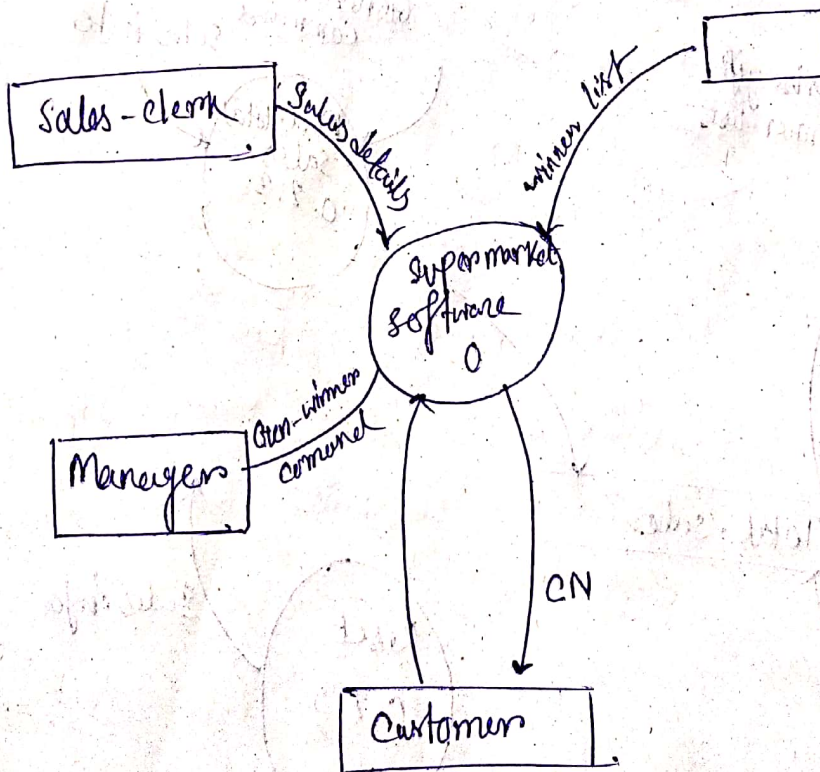 Sales-clerk
Sales details
winner list
Supermarket
software
0
Gen-winner
comand
Managers
CN
Customers